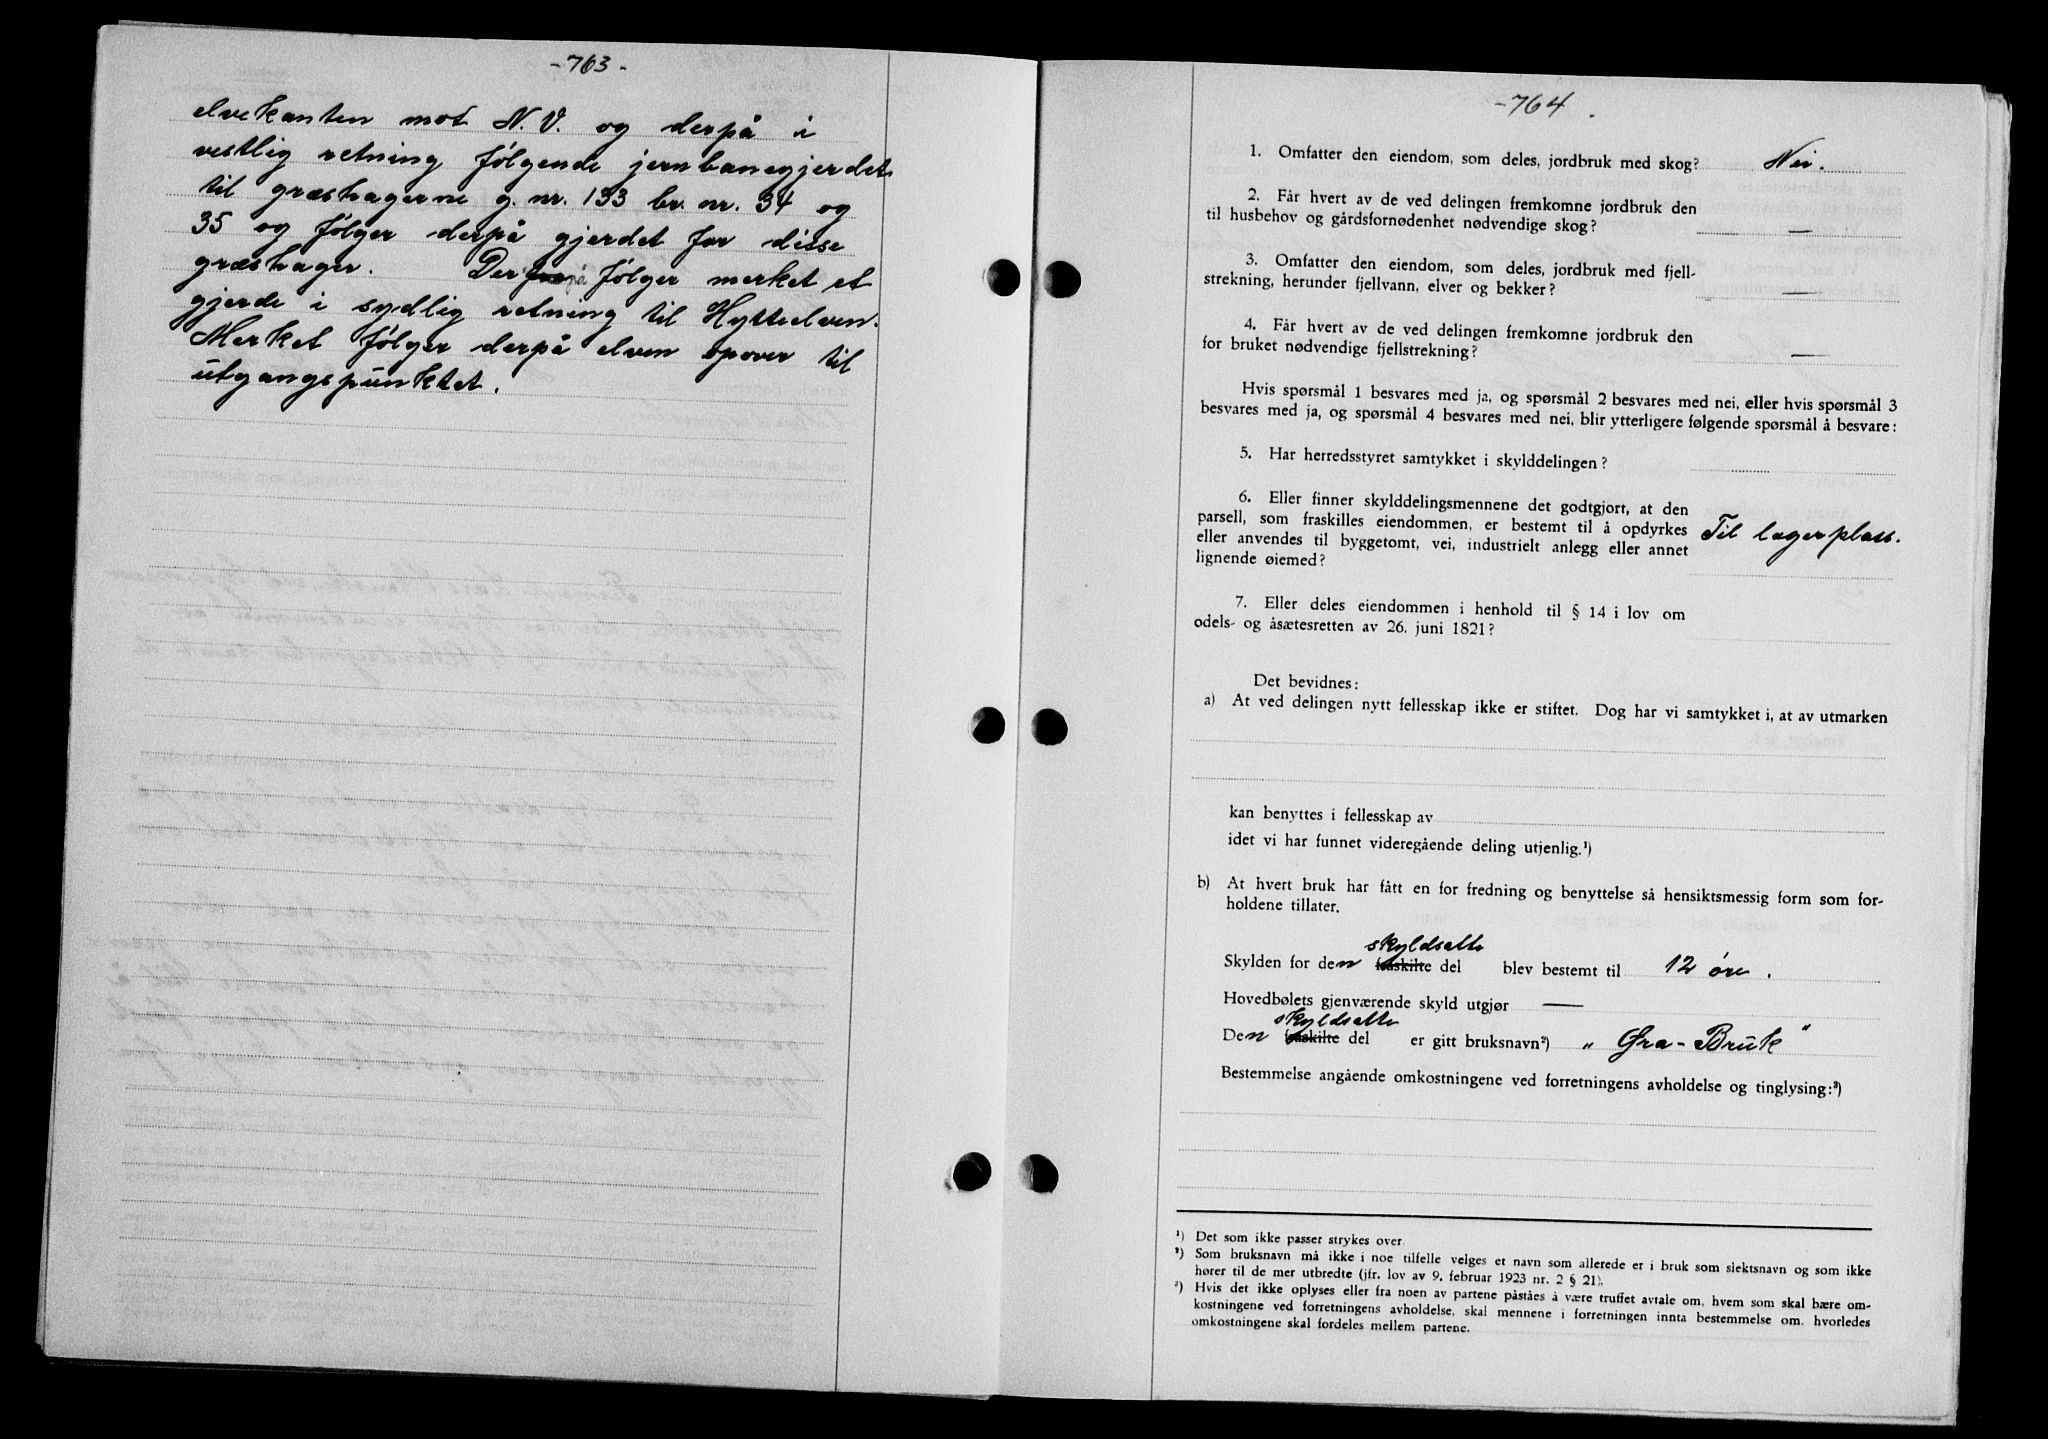 -763-
elvekanten mot N.V. og derpå i
vestlig retning følgende jernbanegjerdet
til græshagerne g. nr. 133 br. nr. 34 og
35 og følger derpå gjerdet for disse
græshager. Derpå følger merket et
gjerde i sydlig retning til Hytteelven.
Merket følger derpå elven opover til
utgangspunktet.
-764.
1. Omfatter den eiendom, som deles, jordbruk med skog? Nei.
2. Får hvert av de ved delingen fremkomne jordbruk den
til husbehov og gårdsfornødenhet nødvendige skog? —
3. Omfatter den eiendom, som deles, jordbruk med fjell-
strekning, herunder fjellvann, elver og bekker? —
4. Får hvert av de ved delingen fremkomne jordbruk den
for bruket nødvendige fjellstrekning? —
Hvis spørsmål 1 besvares med ja, og spørsmål 2 besvares med nei, eller hvis spørsmål 3
besvares med ja, og spørsmål 4 besvares med nei, blir ytterligere følgende spørsmål å besvare:
5. Har herredsstyret samtykket i skylddelingen?
6. Eller finner skylddelingsmennene det godtgjort, at den
parsell, som fraskilles eiendommen, er bestemt til å opdyrkes
eller anvendes til byggetomt, vei, industrielt anlegg eller annet Til lagerplass.
lignende øiemed?
7. Eller deles eiendommen i henhold til § 14 i lov om
odels- og åsætesretten av 26. juni 1821?
Det bevidnes:
a) At ved delingen nytt fellesskap ikke er stiftet. Dog har vi samtykket i, at av utmarken
kan benyttes i fellesskap av
idet vi har funnet videregående deling utjenlig.¹)
b) At hvert bruk har fått en for fredning og benyttelse så hensiktsmessig form som for-
holdene tillater.
skyldsatte
Skylden for den fraskilte del blev bestemt til 12 øre.
Hovedbølets gjenværende skyld utgjør —
skyldsatte
Den fraskilte del er gitt bruksnavn²) „Øra-Bruk"
Bestemmelse angående omkostningene ved forretningens avholdelse og tinglysing:³)
¹) Det som ikke passer strykes over.
²) Som bruksnavn må ikke i noe tilfelle velges et navn som allerede er i bruk som slektsnavn og som ikke
hører til de mer utbredte (jfr. lov av 9. februar 1923 nr. 2 § 21).
³) Hvis det ikke oplyses eller fra noen av partene påståes å være truffet avtale om, hvem som skal bære om-
kostningene ved forretningens avholdelse, skal mennene i forretningen innta bestemmelse om, hvorledes
omkostningene skal fordeles mellem partene.